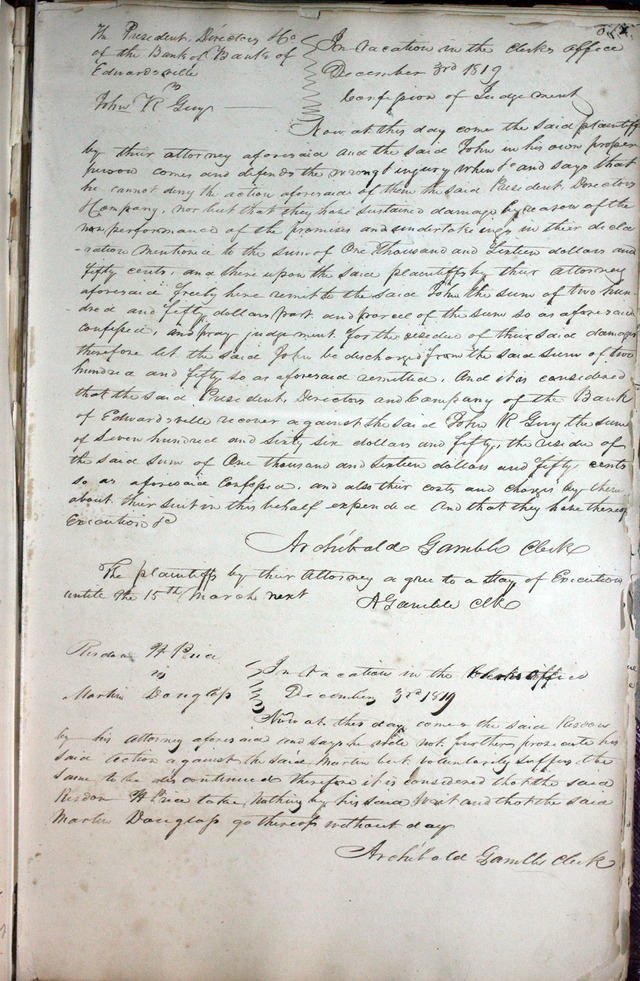 The President, Directors &Co
of the Bank of Bank of
Edwardsville
vs
John R Guy
In vacation in the clerks office
December 3rd 1819
Confession of Judgement
Now at this day come the said plaintiffs
by their attorney aforesaid and the said John in his own proper
person comes and defends the wrong & injury when &c and says that
he cannot deny the action aforesaid of them the said President, Directors
&Company, nor but that they have sustained damage by reason of the
non performance of the promises and undertakings in their decla
-ration mentioned to the sum of One thousand and Sixteen dollars and
fifty cents, and thereupon the said plaintiffs by their attorney
aforesaid freely here remit to the said John the sum of two hun
-dred and fifty dollars part and parcel of the sum so as aforesaid
confessed, and pray judgement for the residue of their said damages
therefore let the said John be discharged from the said sum of two
hundred and fifty so as aforesaid remitted. And it is considered
that the said President, Directors and Company of the Bank
of Edwardsville recover against the said John R Guy the sum
of Seven hundred and sixty six dollars and fifty, the residue of
the said sum of One thousand and sixteen dollars and fifty cents
so as aforesaid confessed, and also their costs and charges by them
about their suit in this behalf expended And that they have thereof
Execution &c
Archibald Gamble Clerk
The plaintiffs by their Attorney agree to a stay of Execution
until the 15th March next A Gamble clk
Risdon H Price
vs
Martin Douglass
In vacation in the Clerks office
December 3rd 1819
Now at this day comes the said Risdon
by his attorney aforesaid and says he will not further prosecute his
said action against the said Martin but voluntarily suffers the
same to be discontinued therefore it is considered that the said
Risdon H Price take nothing by his said writ and that the said
Martin Douglass go thereof without day
Archibald Gamble Clerk